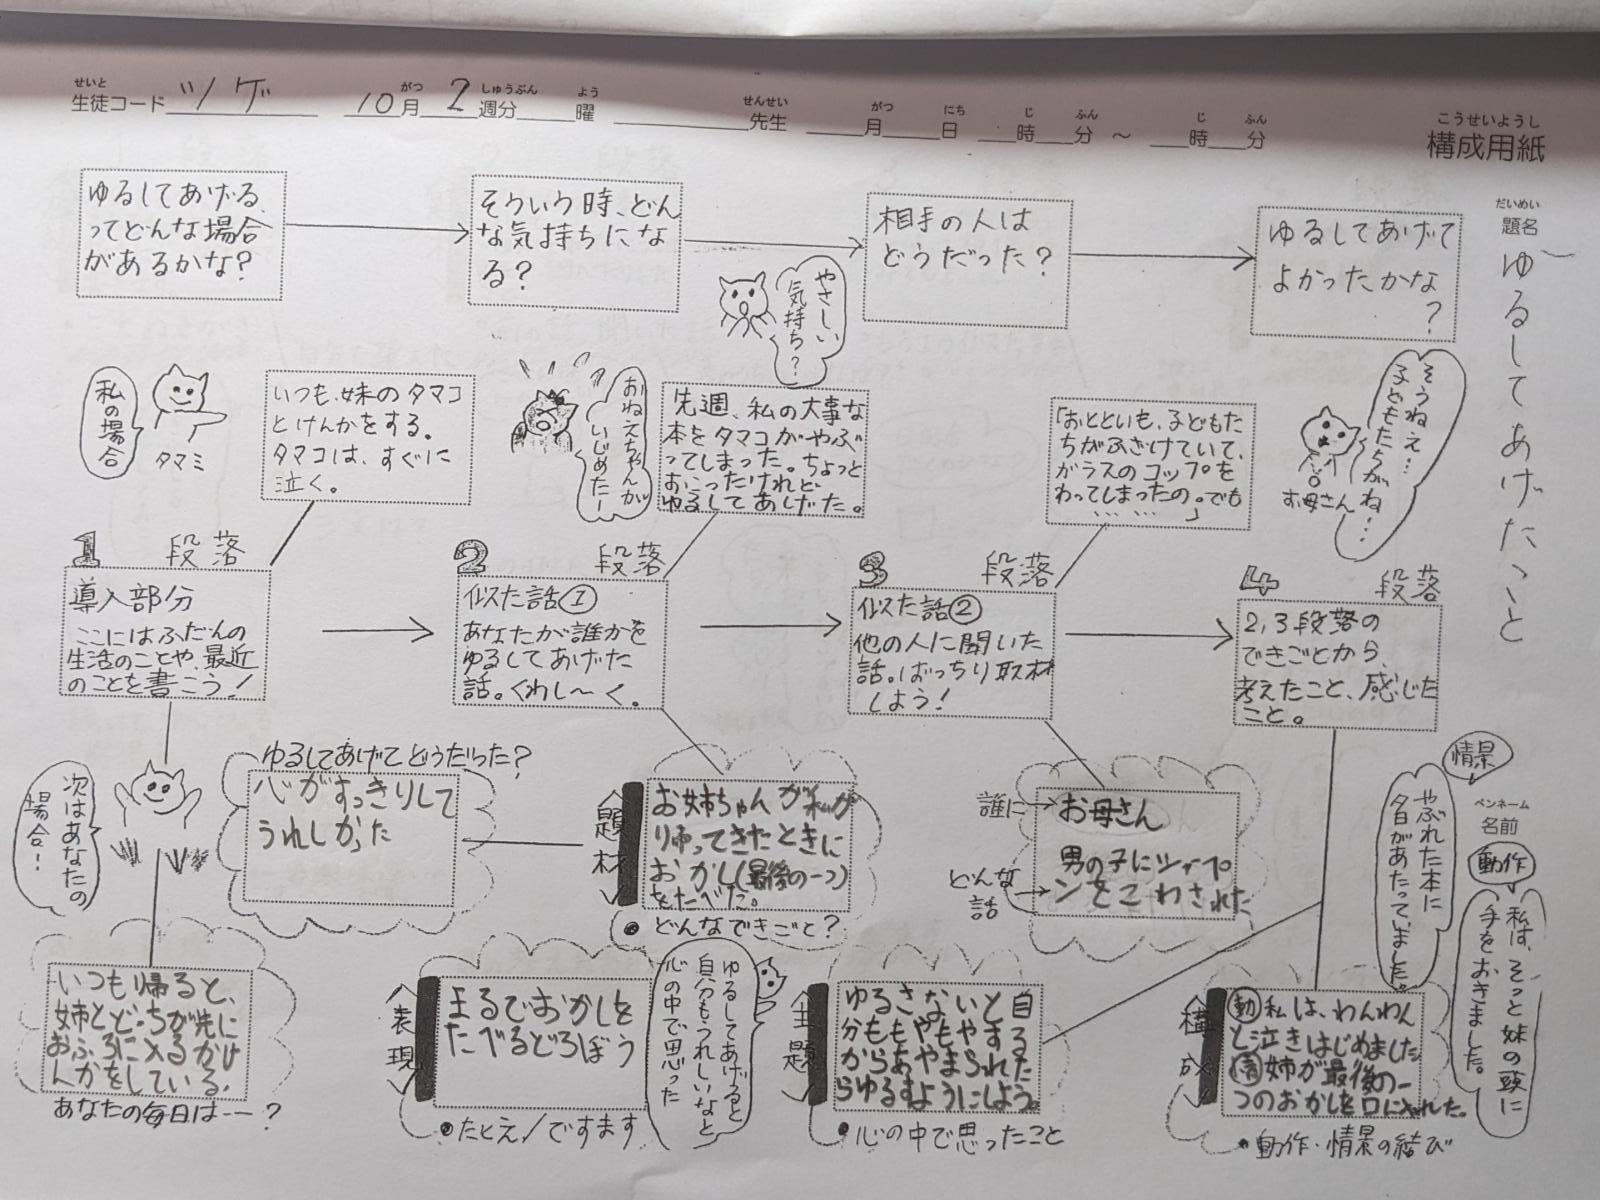 せいと
生徒コード ツゲ
10月 2週分 曜
がつ しゅうぶん よう
せんせい がつ にち じ ふん じ ふん
先生 月 日 時 分 ～ 時 分
こうせいようし
構成用紙
だいめい
題名
ゆるしてあげたこと
ペンネーム
名前
ゆるしてあげる、
ってどんな場合
があるかな?
そういう時、どん
な気持ちにな
る?
相手の人は
どうだった?
ゆるしてあげて
よかったかな
?
やさしい
気持ち?
私の場合
タマミ
いつも、妹のタマコ
とけんかをする。
タマコは、すぐに
泣く。
おねえちゃんが
いじめたー
先週、私の大事な
本をタマコがやぶ
ってしまった。ちょっと
おこったけれど
ゆるしてあげた。
「おとといも、子どもた
ちがふざけていて、
ガラスのコップを
わってしまったの。でも
……」
お母さん
そうねえ…
子どもたちがね…
1 段落
導入部分
ここにはふだんの
生活のことや、最近
のことを書こう!
2 段落
似た話①
あなたが誰かを
ゆるしてあげた
話。くわし〜く。
3 段落
似た話②
他の人に聞いた
話。ばっちり取材
しよう!
4 段落
2,3段落の
できごとから、
考えたこと、感じた
こと。
次はあなたの
場合!
ゆるしてあげてどうだった?
心がすっきりして
うれしかった
題材
お姉ちゃんが私が
帰ってきたときに
おかし(最後の一つ)
をたべた。
どんなできごと?
誰に
お母さん
どんな
話
男の子にシャープ
ンをこわされた
情景
やぶれた本に
夕日があたっていました。
動作
私は、そっと妹の頭に
手をおきました。
いつも帰ると、
姉とどっちが先に
おふろに入るかけ
んかをしている。
あなたの毎日は--?
表現
まるでおかしを
たべるどろぼう
たとえ/ですます
ゆるしてあげると
自分もうれしいなと
心の中で思った
主題
ゆるさないと自
分ももやもやする
からあやまられた
らゆるすようにしよう。
心の中で思ったこと
構成
動 私は、わんわん
と泣きはじめました
情 姉が最後の一
つのおかしを口に入れた。
動作・情景の結び